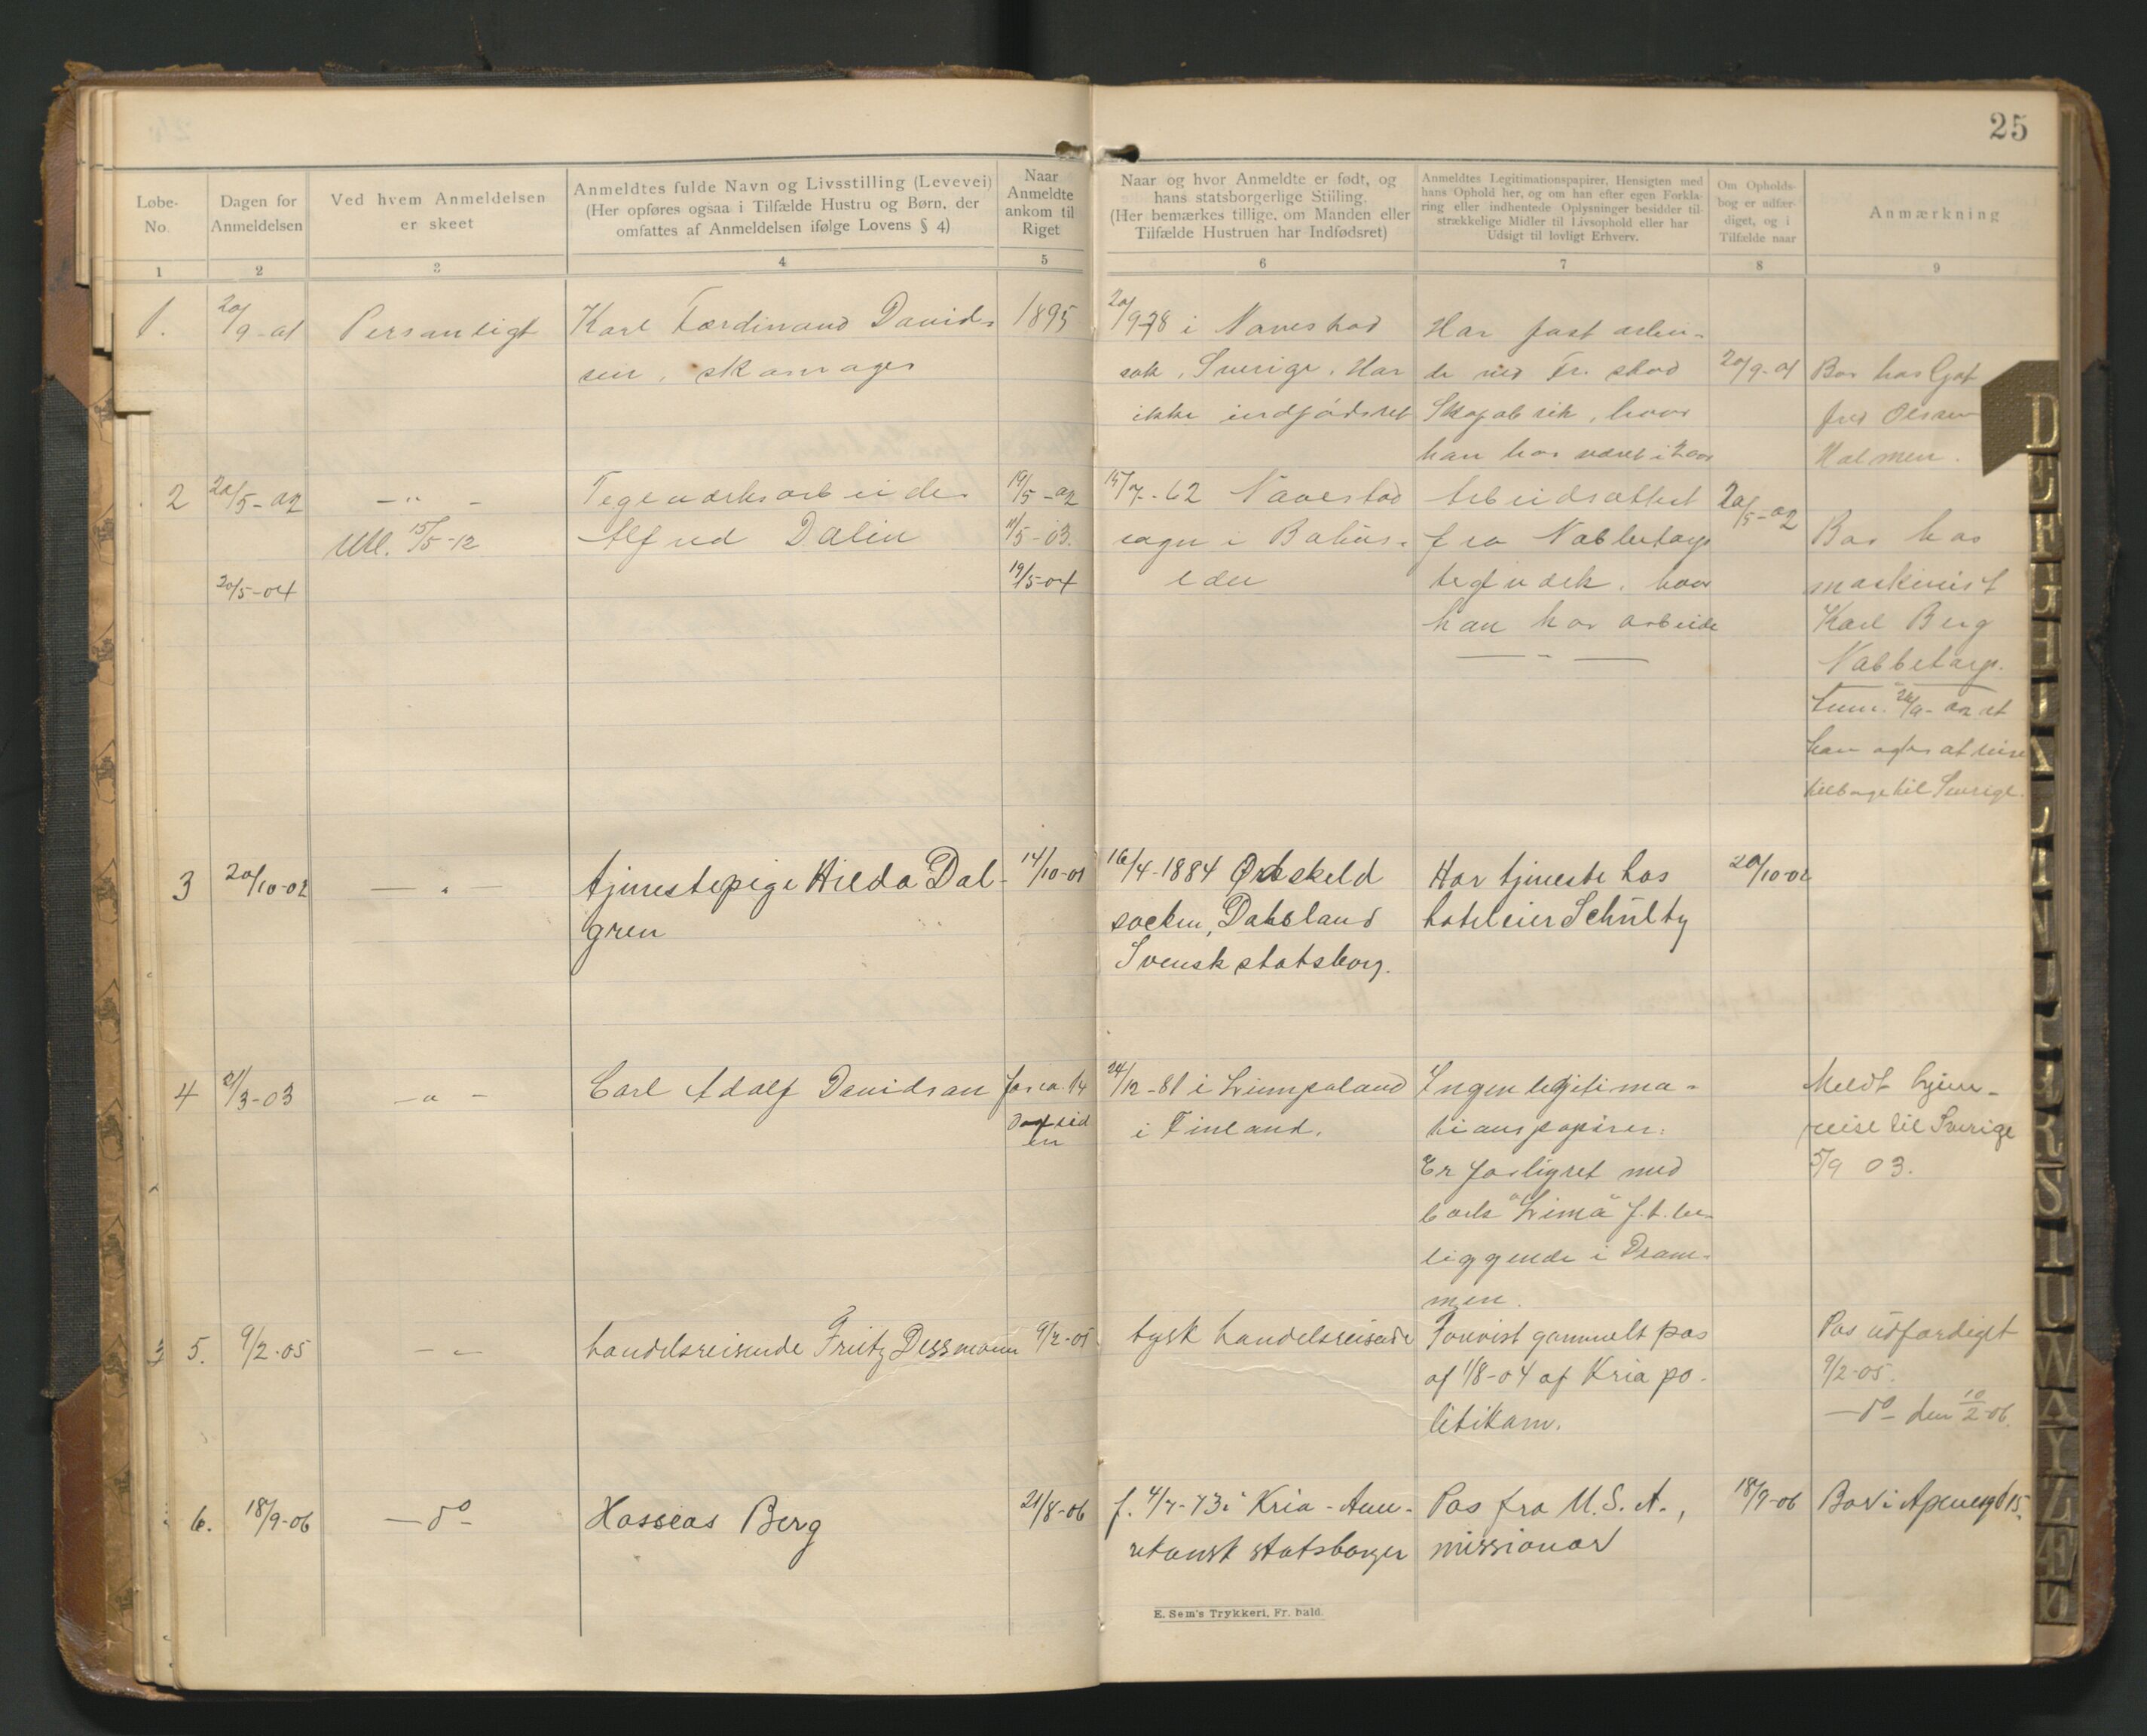 25
Løbe-
No.
Dagen for
Anmeldelsen
Ved hvem Anmeldelsen
er skeet
Anmeldtes fulde Navn og Livsstilling (Levevei)
(Her opføres ogsaa i Tilfælde Hustru og Børn, der
omfattes af Anmeldelsen ifølge Lovens § 4)
Naar
Anmeldte
ankom til
Riget
Naar og hvor Anmeldte er født, og
hans statsborgerlige Stilling.
(Her bemærkes tillige, om Manden eller
Tilfælde Hustruen har Indfødsret)
Anmeldtes Legitimationspapirer, Hensigten med
hans Ophold her, og om han efter egen Forkla-
ring eller indhentede Oplysninger besidder til-
strækkelige Midler til Livsophold eller har
Udsigt til lovligt Erhverv.
Om Opholds-
bog er udfær-
diget, og i
Tilfælde naar
Anmærkning
1
2
3
4
5
6
7
8
9
1.
20/9-01
Personligt
Karl Ferdinand David-
sen, skomager
1895
20/9-78 i Navestad
sok, Sverige. Har
ikke indfødsret
Har fast arbei-
de ved Fr. stad
Skofabrik, hvor
han har været i 2 aar
20/9-01
Bor hos Got
fred Olsen
Holmen.
2
20/5-02
— " —
Tegelverksarbeider
Alfred Dalin
19/5-02
11/5-03.
19/5-04
Utl. 15/5-12
20/5-04
15/7-62 Navestad
sogn i Bohus-
len
Arbeidsattest
fra Nabbetorp
teglverk, hvor
han har arbeide
20/5-02
Bor hos
maskinist
Karl Berg
Nabbetorp.
han agter at reise
tilbage til Sverige.
3
20/10-02
— " —
tjenestepige Hilda Dal-
gren
14/10-01
16/4-1884
socken, Dalsland
Svensk statsborg.
Har tjeneste hos
hoteleier Schultz
20/10-02
4
21/3-03
— " —
Carl Adolf Davidson
for ca. 14
dage sid
en
24/12-81 i Limpaland
i Finland.
Ingen legitima-
tionspapirer.
Er forligret med
bark "Lima" f.t. be-
liggende i Dram-
men.
Meldt hjem-
reise til Sverige
5/9 03.
5.
9/2-05
— " —
handelsreisende Fritz Dessmann
9/2-05
tysk handelsreisende
Forevist gammelt pas
af 1/8-04 af Kria po-
litikam.
Pas udfærdiget
9/2-05.
— do — den 10/2-06.
6.
18/9-06
— do —
Hasseas Berg
21/8-06
f. 4/7-73 i Kria - Ame-
rikansk statsborger
Pas fra U.S.A.,
missionær
18/9-06
Bor i Apenesgd 15.
E. Sem's Trykkeri, Fr. hald.
D
E
F
G
H
I
K
L
M
N
O
P
R
S
T
U
W
A
Y
Z
Æ
Ø